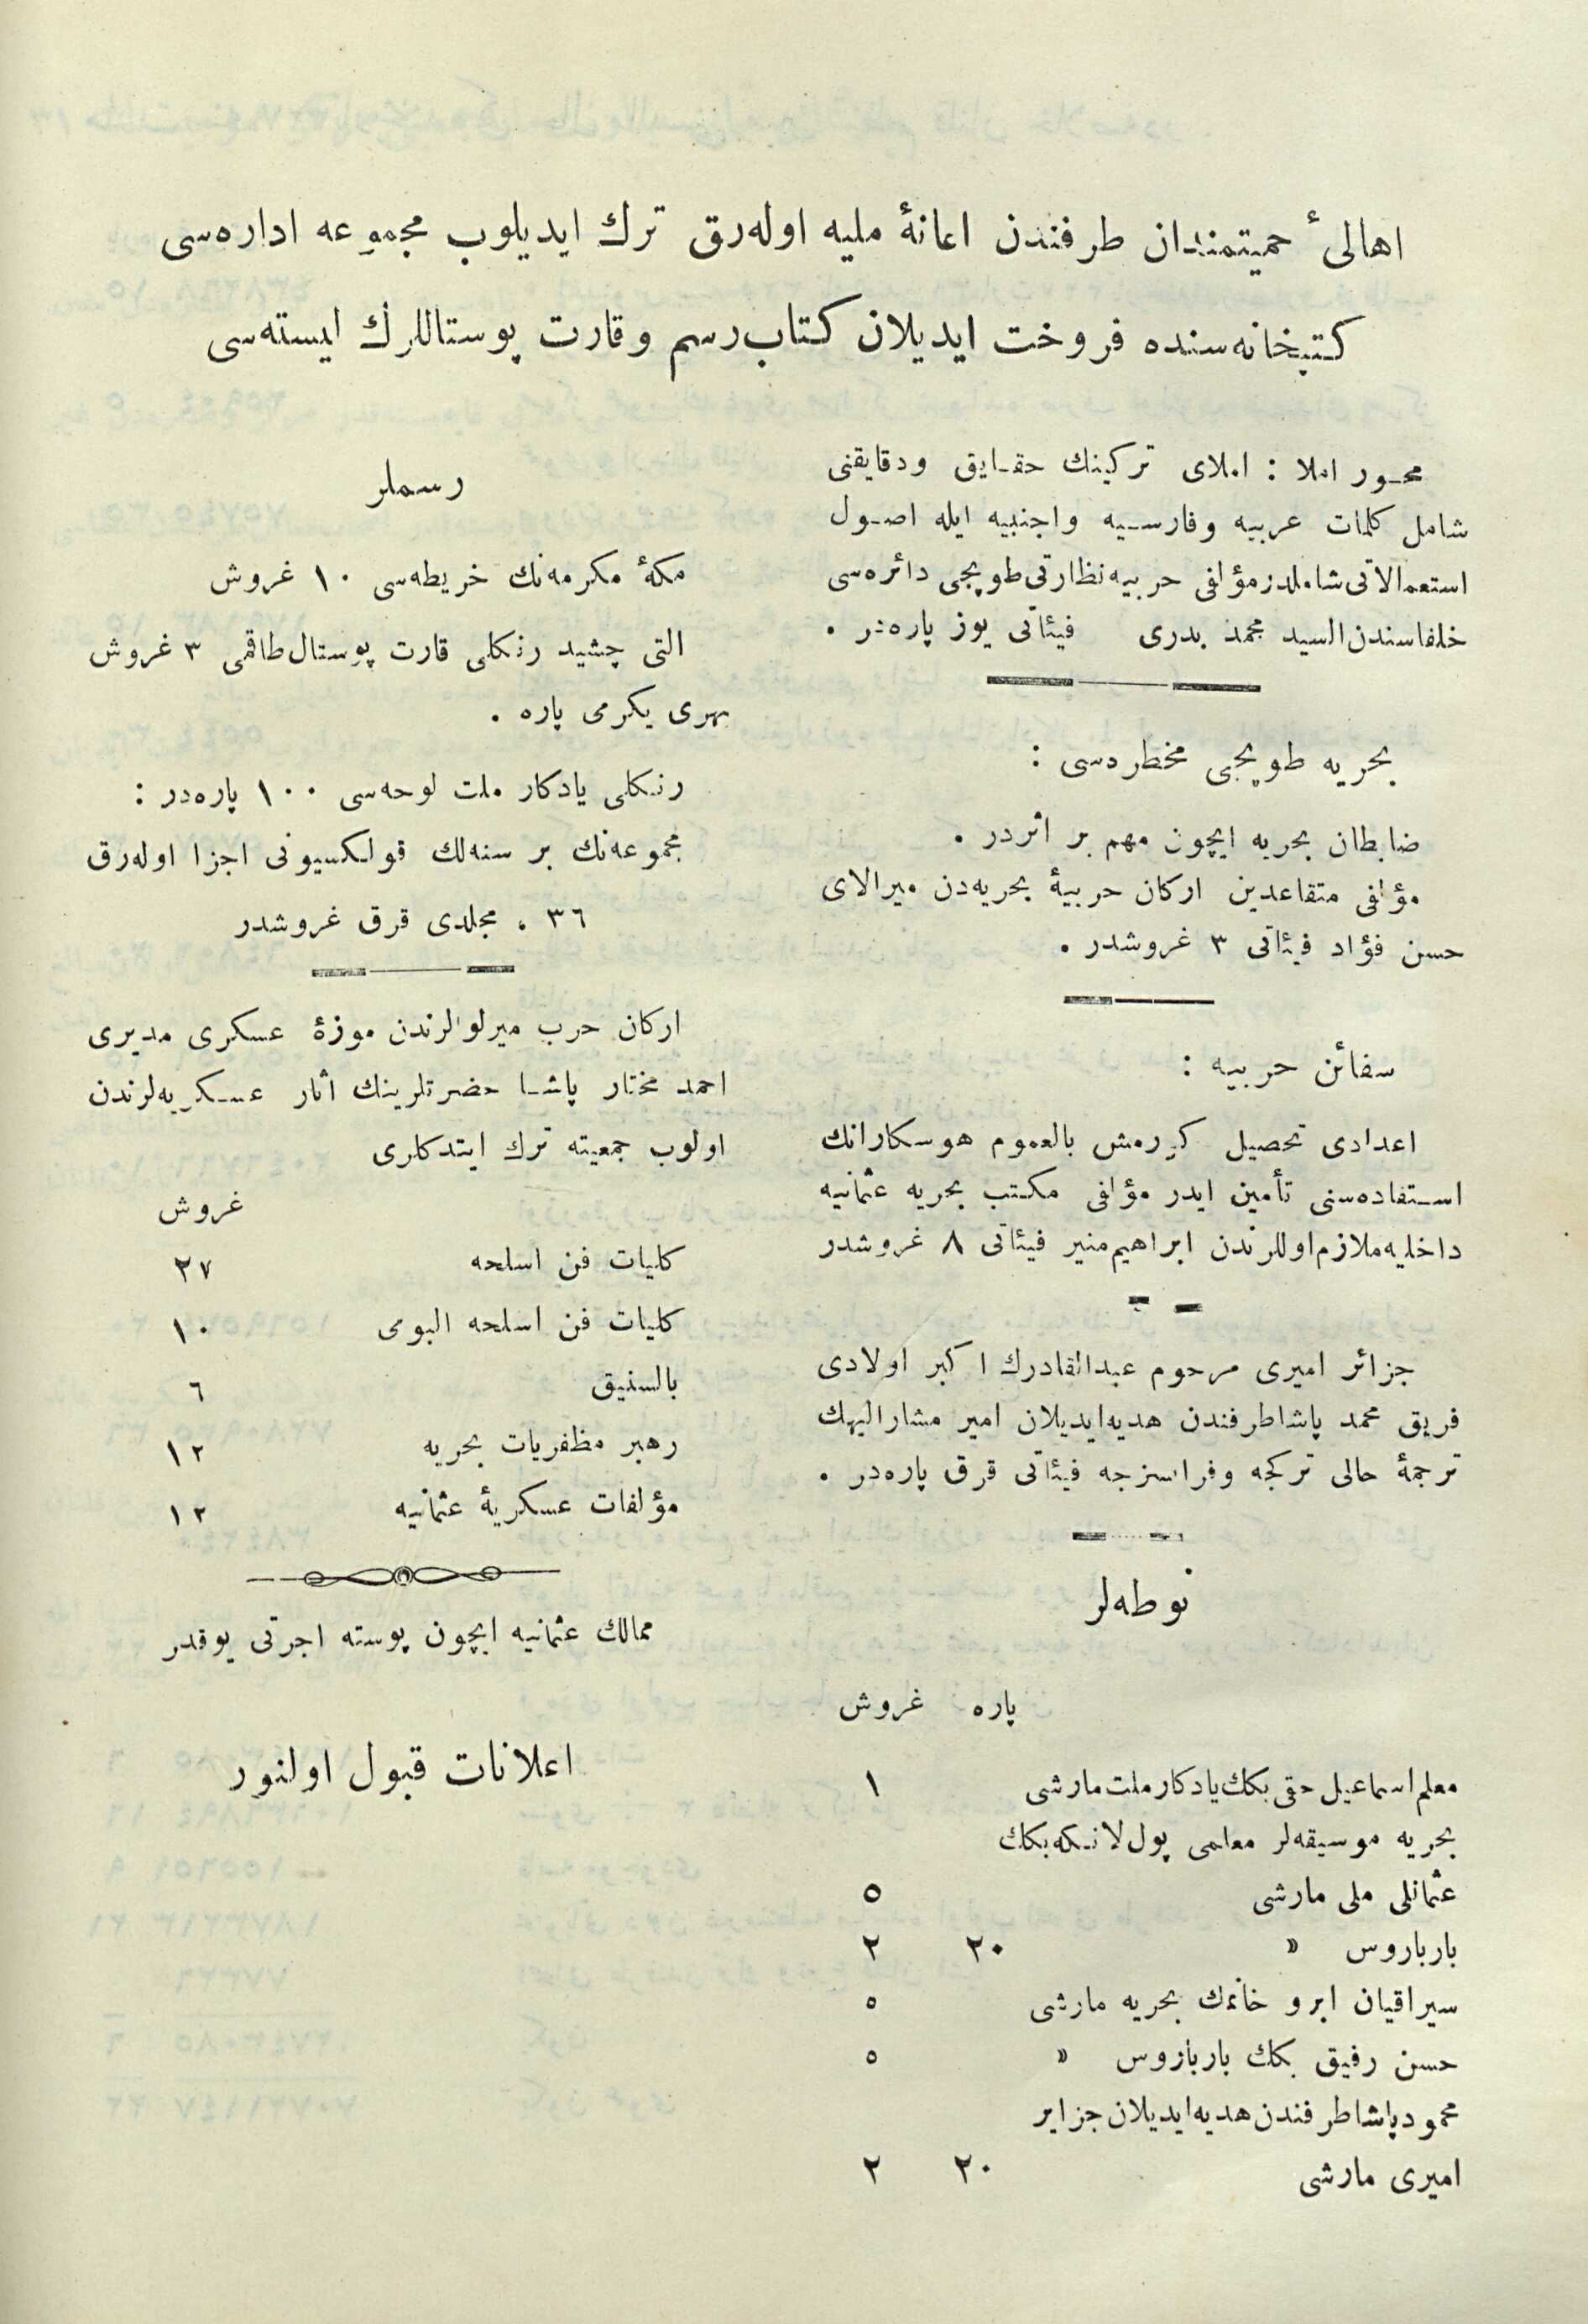 اهالیٔ حمیتمندان طرفندن اعانهٔ ملیه اوله‌رق ترك ایدیلوب مجموعه اداره‌سی
كتبخانه‌سنده فروخت ایدیلان كتاب رسم وقارت پوستاللرك لیسته‌سی
محور املا : املای تركینك حقایق ودقایقنی
شامل كلمات عربیه وفارسیه واجنبیه ایله اصول
استعمالاتی شاملدر مؤلفی حربیه نظارتی طوپجی دائره‌سی
خلفاسندن السید محمد بدری فیئاتی یوز پاره‌در .
بحریه طوپجی مخطره‌سی :
ضابطان بحریه ایچون مهم بر اثردر .
مؤلفی متقاعدین اركان حربیهٔ بحریه‌دن میرالای
حسن فؤاد فیئاتی ٣ غروشدر .
سفائن حربیه :
اعدادی تحصیل كورمش بالعموم هوسكارانك
استفاده‌سنی تأمین ایدر مؤلفی مكتب بحریه عثمانیه
داخلیه ملازم اوللرندن ابراهیم منیر فیئاتی ٨ غروشدر
جزائر امیری مرحوم عبدالقادرك اكبر اولادی
فریق محمد پاشا طرفندن هدیه ایدیلان امیر مشارالیهك
ترجمهٔ حالی تركجه وفرانسزجه فیئاتی قرق پاره‌در .
نوطه‌لر
پاره غروش
معلم اسماعیل حقی بكك یادكار ملت مارشی ١
بحریه موسیقه‌لر معلمی پول لانكه بكك
عثمانلی ملی مارشی ٥
بارباروس » ٢٠ ٢
سیراقیان ابرو خانمك بحریه مارشی ٥
حسن رفیق بكك بارباروس » ٥
محمود پاشا طرفندن هدیه ایدیلان جزایر
امیری مارشی ٢٠ ٢
رسملر
مكهٔ مكرمه‌نك خریطه‌سی ١٠ غروش
التی چشید رنكلی قارت پوستال طاقمی ٣ غروش
بهری یكرمی پاره .
رنكلی یادكار ملت لوحه‌سی ١٠٠ پاره‌در :
مجموعه‌نك بر سنه‌لك قولكسیونی اجزا اوله‌رق
٣٦ ، مجلدی قرق غروشدر
اركان حرب میرلوالرندن موزهٔ عسكری مدیری
احمد مختار پاشا حضرتلرینك اثار عسكریه‌لرندن
اولوب جمعیته ترك ایتدكلری
غروش
كلیات فن اسلحه ٢٧
كلیات فن اسلحه البومی ١٠
بالستیق ٦
رهبر مظفریات بحریه ١٢
مؤلفات عسكریهٔ عثمانیه ١٢
ممالك عثمانیه ایچون پوسته اجرتی یوقدر
اعلانات قبول اولنور